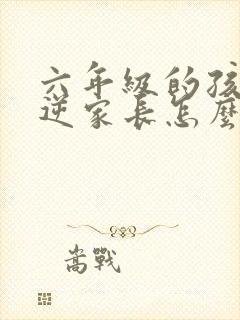 六年級的孩
逆家長怎麼
嵩戰